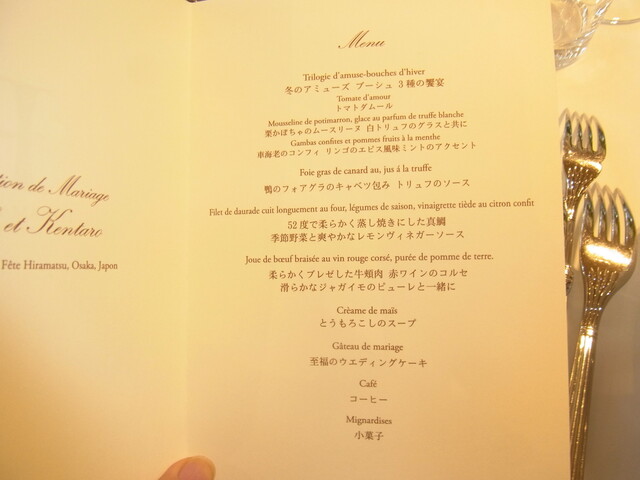 de Mariage
et Kentaro
Fête Hiramatsu, Osaka, Japon
Menu
Trilogie d'amuse-bouches d'hiver
冬のアミューズ ブーシュ 3種の饗宴
Tomate d'amour
トマトダムール
Mousseline de potimarron, glace au parfum de truffe blanche
栗かぼちゃのムースリーヌ 白トリュフのグラスと共に
Gambas confites et pommes fruits à la menthe
車海老のコンフィ リンゴのエピス風味ミントのアクセント
Foie gras de canard au, jus á la truffe
鴨のフォアグラのキャベツ包み トリュフのソース
Filet de daurade cuit longuement au four, légumes de saison, vinaigrette tiède au citron confit
52度で柔らかく蒸し焼きにした真鯛
季節野菜と爽やかなレモンヴィネガーソース
Joue de bœuf braisée au vin rouge corsé, purée de pomme de terre.
柔らかくブレゼした牛頬肉 赤ワインのコルセ
滑らかなジャガイモのピューレと一緒に
Crèame de maïs
とうもろこしのスープ
Gâteau de mariage
至福のウエディングケーキ
Café
コーヒー
Mignardises
小菓子